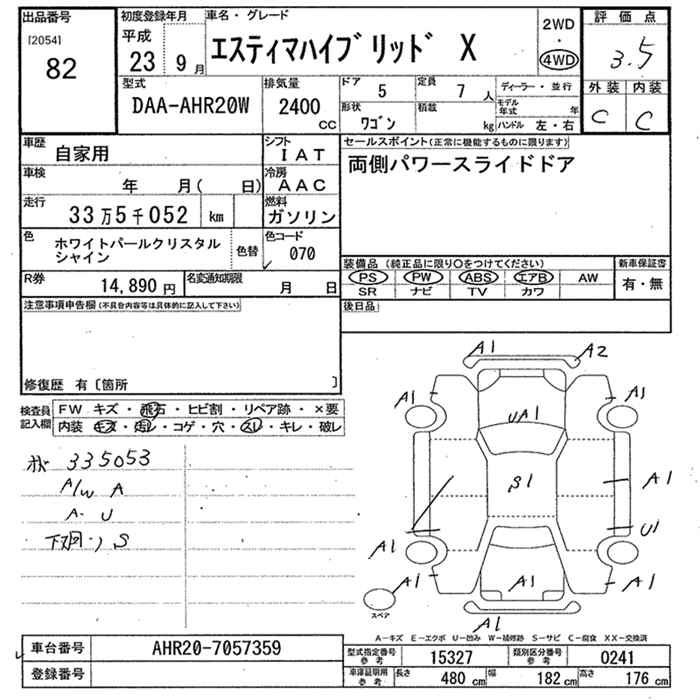 出品番号
[2054]
82
初度登録年月
平成
23 9 月
車名・グレード
エスティマハイブリッド X
2WD
・
4WD
評価点
3.5
外装 内装
C C
型式
DAA-AHR20W
排気量
2400
CC
ドア
5
定員
7 人
形状
ワゴン
積載
kg
ディーラー・並行
モデル年式 年
ハンドル 左・右
車歴
自家用
シフト
IAT
車検
年 月( 日)
冷房
AAC
走行
33万5千052 km
燃料
ガソリン
色
ホワイトパールクリスタル
シャイン
色替
色コード
070
R券
14,890 円
名変通知期限
月 日
セールスポイント(正常に機能するものに限ります)
両側パワースライドドア
装備品(純正品に限り○をつけてください)
PS PW ABS エアB AW
SR ナビ TV カワ
新車保証書
有・無
後日品
注意事項申告欄(不具合内容等は具体的に記入して下さい)
修復歴 有〔箇所 〕
検査員
記入欄
FW キズ・飛石・ヒビ割・リペア跡・×要
内装 キズ・汚レ・コゲ・穴・スレ・キレ・破レ
335053
A/W A
A- U
下廻り S
A1 A2
A1 A1
UA1
S1
A1
U1
A1
A1 A1 A1
スペア
A1
A-キズ E-エクボ U-凹み W-補修跡 S-サビ C-腐食 XX-交換済
車台番号
AHR20-7057359
登録番号
型式指定番号
参考
15327
類別区分番号
参考
0241
車庫証明用
参考
長さ
480 cm
幅
182 cm
高さ
176 cm